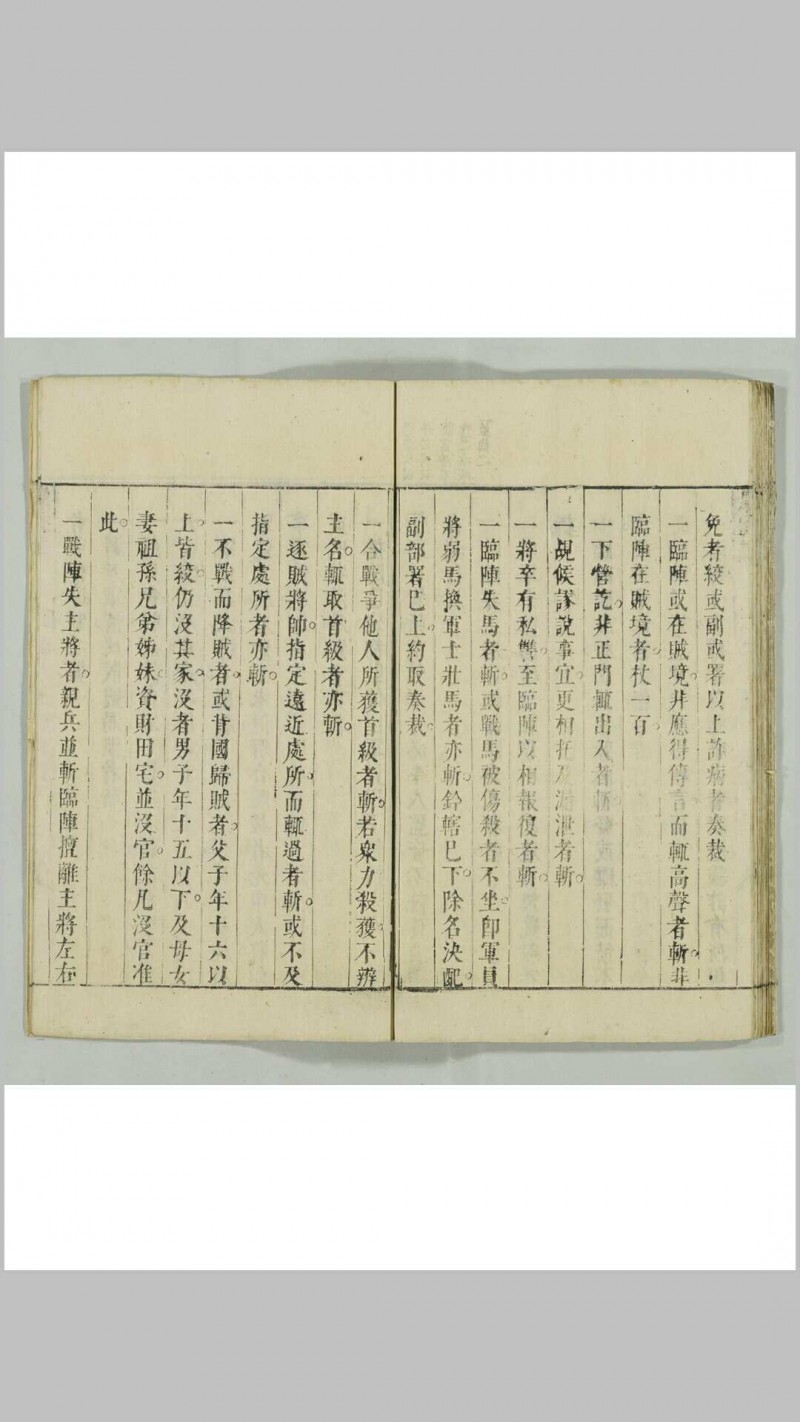 免者絞或副或署以上詐病者奏裁
一臨陣或在賊境井應得傳言而輒高聲者斬非
臨陣在賊境者杖一百
一下營訖非正門輒出入者斬
一覘候謬說事宜更相托及漏泄者斬
一將卒有私讐至臨陣以相報復者斬
一臨陣失馬者斬或戰馬被傷殺者不坐卽軍員
將弱馬換軍士壯馬者亦斬鈐轄巳下除名決配
副部署巳上約取奏裁
一合戰爭他人所獲首級者斬若衆力殺獲不辨
主名輒取首級者亦斬
一逐賊將帥指定遠近處所而輒過者斬或不及
指定處所者亦斬
一不戰而降賊者或背國歸賊者父子年十六以
上皆絞仍沒其家沒者男子年十五以下及母女
妻祖孫兄弟姊妹資財田宅並沒官餘凡沒官准
此
一戰陣失主將者親兵並斬臨陣擅離主將左右